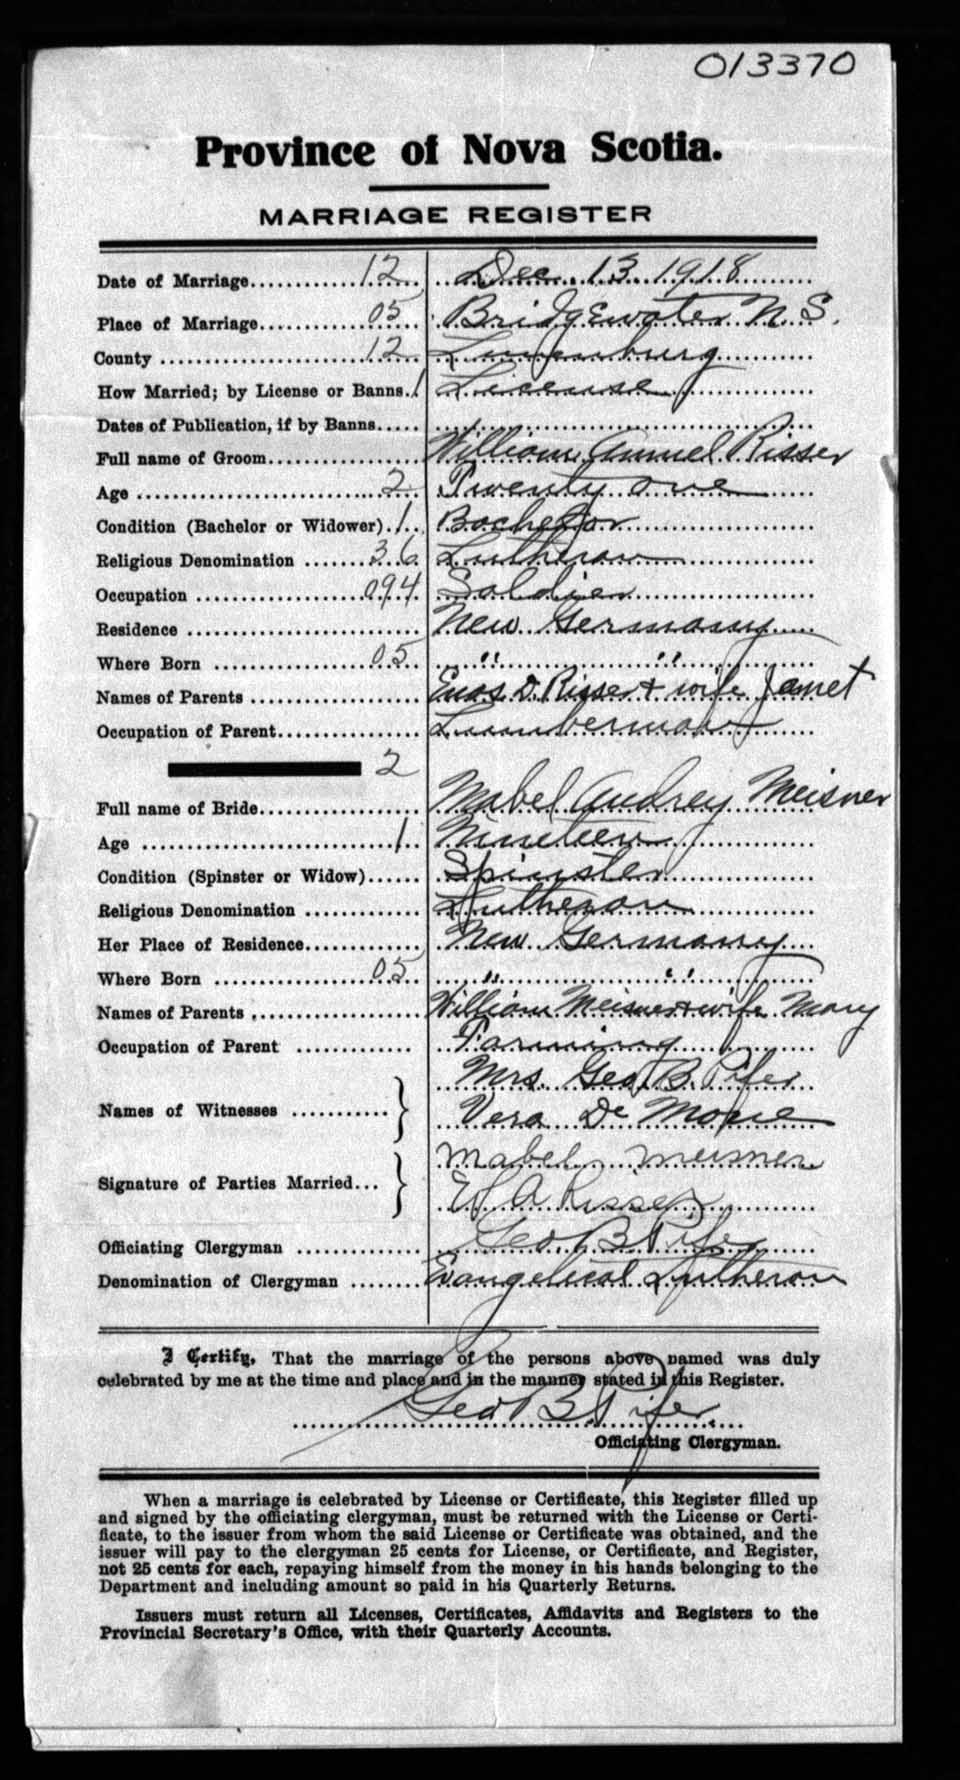 013370
Province of Nova Scotia.
MARRIAGE REGISTER
Date of Marriage 12 Dec. 13 1918
Place of Marriage 05 Bridgewater N. S.
County 12 Lunenburg
How Married; by License or Banns 1 License
Dates of Publication, if by Banns
Full name of Groom William Risser
Age 2 Twenty one
Condition (Bachelor or Widower) 1 Bachelor
Religious Denomination 36 Lutheran
Occupation 094 Soldier
Residence New Germany
Where Born 05 " "
Names of Parents Enos D. Risser + wife Janet
Occupation of Parent Lumberman
2
Full name of Bride Mabel Audrey Meisner
Age 1 Nineteen
Condition (Spinster or Widow) Spinster
Religious Denomination Lutheran
Her Place of Residence New Germany
Where Born 05 " "
Names of Parents William Meisner + wife Mary
Occupation of Parent Farming
Mrs. Geo. B. Pifer
Names of Witnesses
Vera De
Mabel Meisner
Signature of Parties Married
W A Risser
Officiating Clergyman Geo B Pifer
Denomination of Clergyman Evangelical Lutheran
I Certify, That the marriage of the persons above named was duly
celebrated by me at the time and place and in the manner stated in this Register.
Geo B. Pifer
Officiating Clergyman.
When a marriage is celebrated by License or Certificate, this Register filled up
and signed by the officiating clergyman, must be returned with the License or Certi-
ficate, to the issuer from whom the said License or Certificate was obtained, and the
issuer will pay to the clergyman 25 cents for License, or Certificate, and Register,
not 25 cents for each, repaying himself from the money in his hands belonging to the
Department and including amount so paid in his Quarterly Returns.
Issuers must return all Licenses, Certificates, Affidavits and Registers to the
Provincial Secretary's Office, with their Quarterly Accounts.